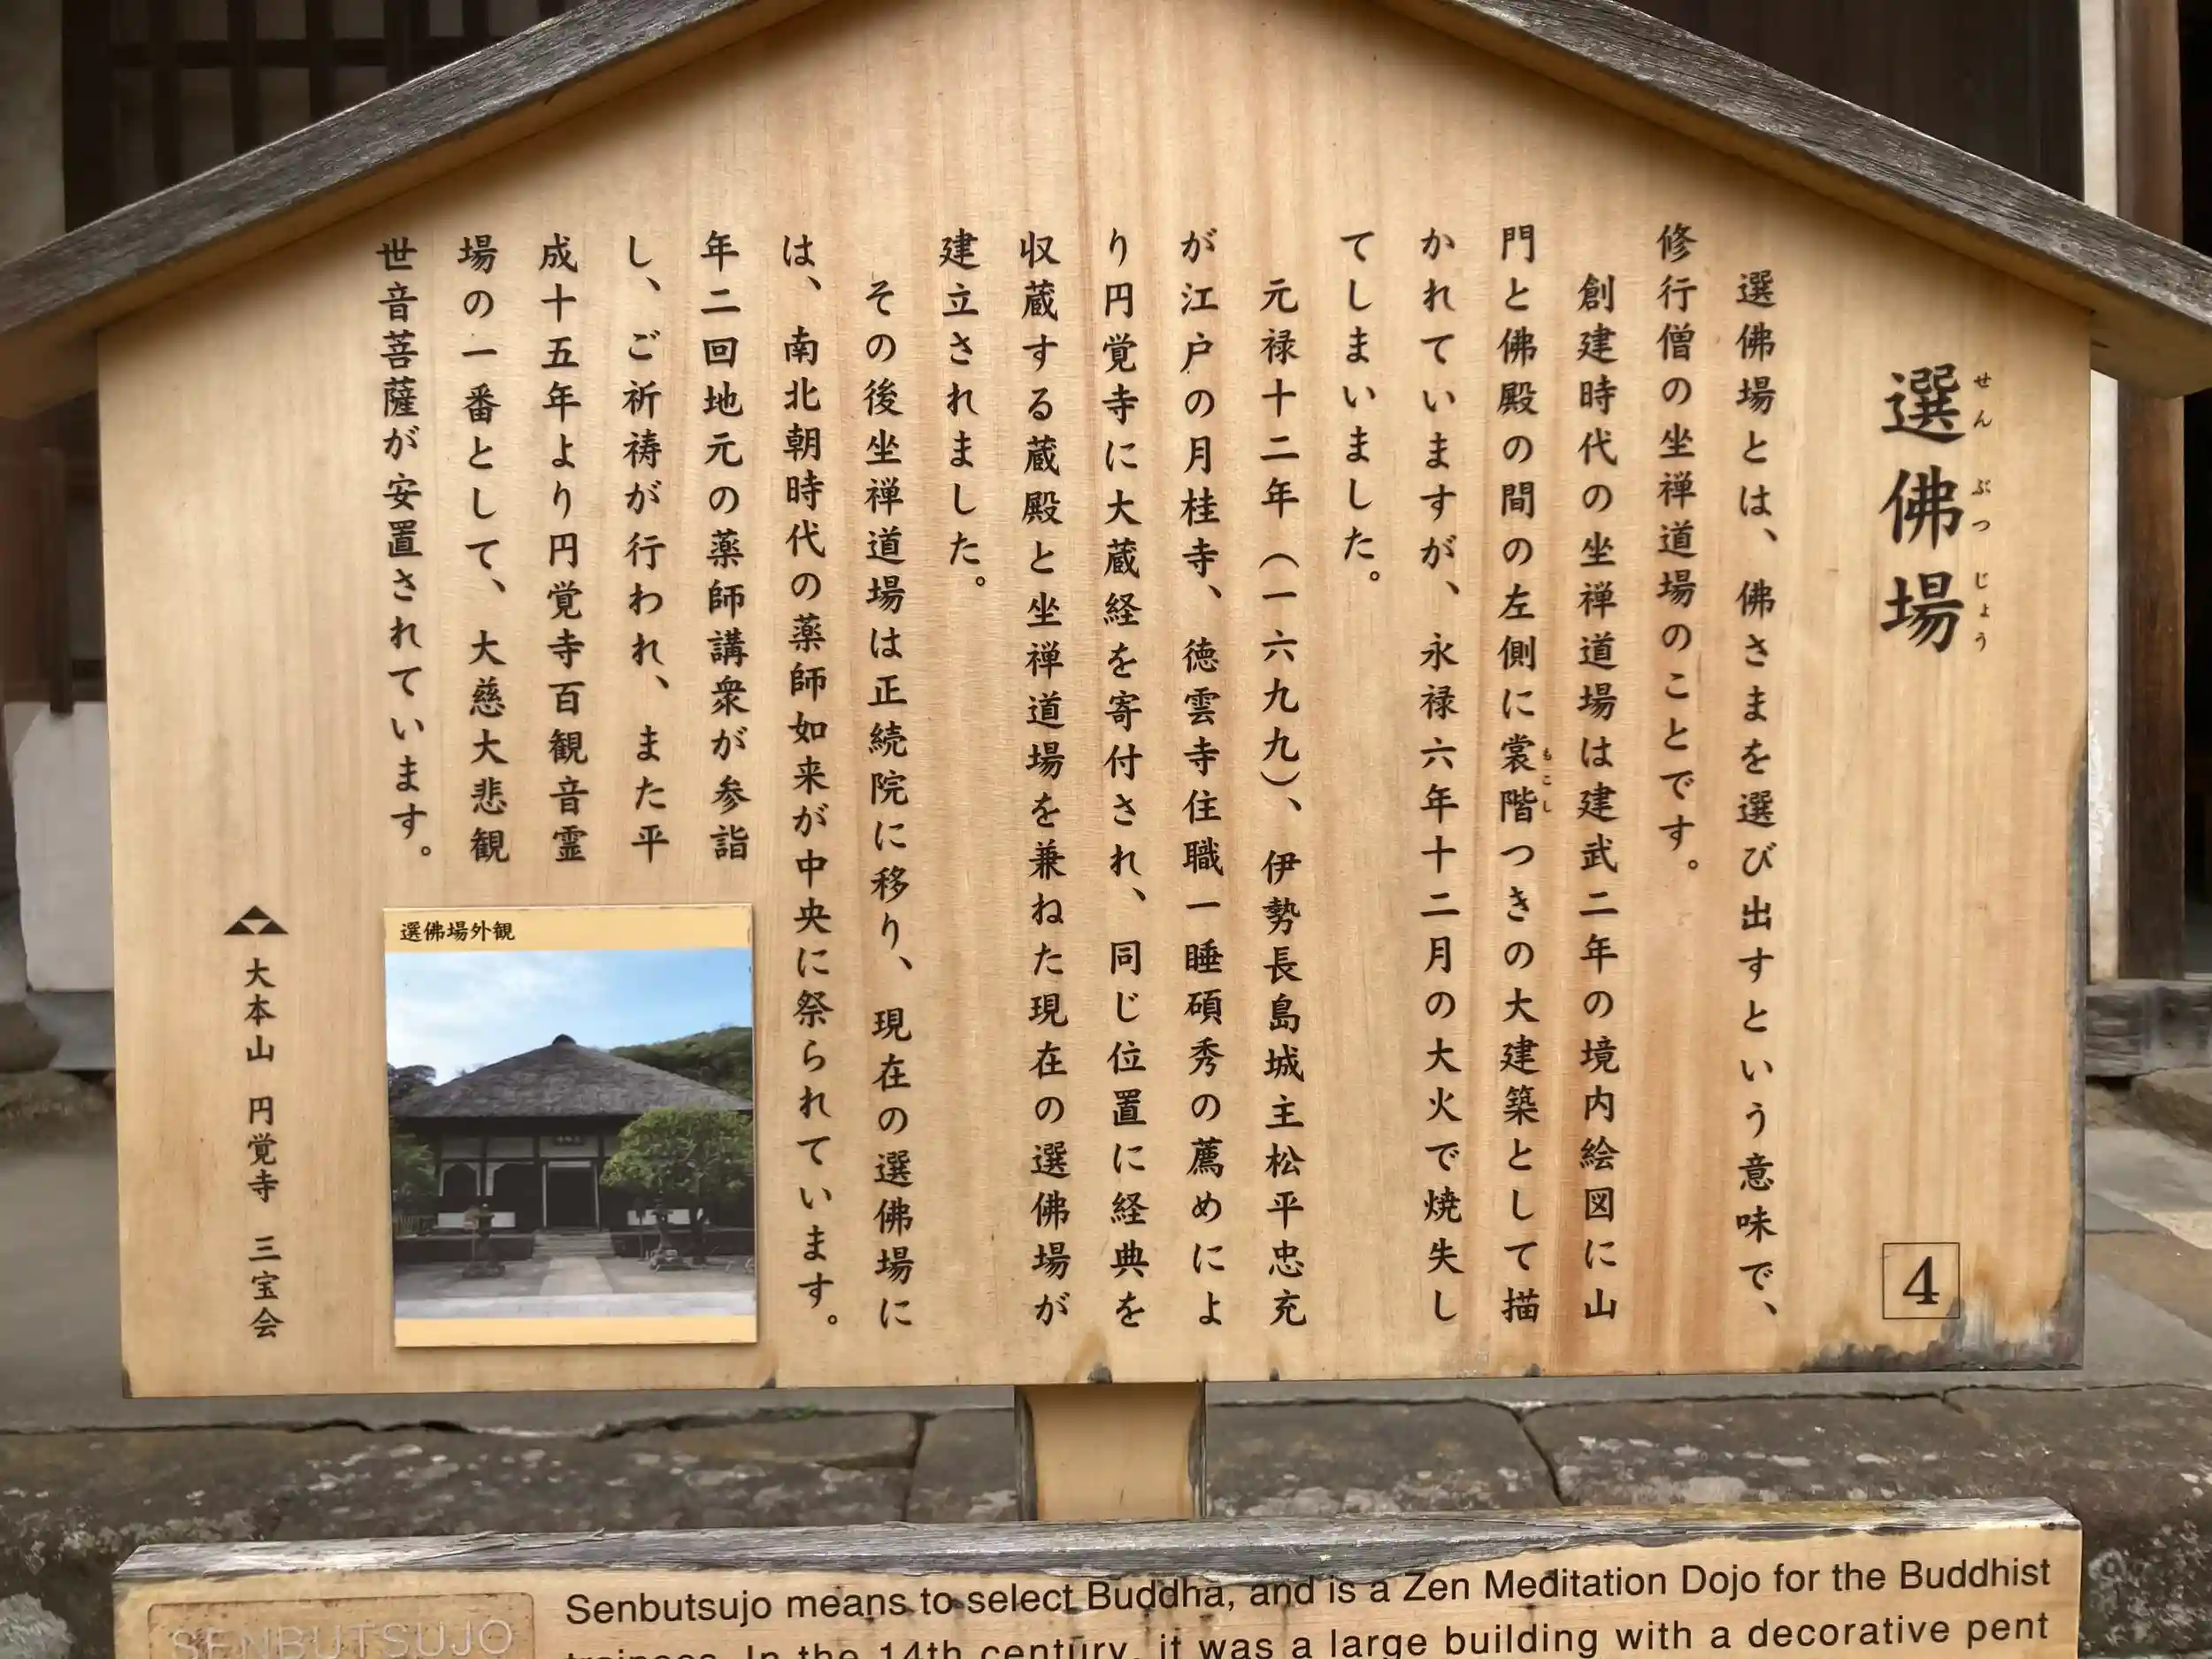 選佛場
せん ぶつ じょう
4
選佛場とは、佛さまを選び出すという意味で、
修行僧の坐禅道場のことです。
創建時代の坐禅道場は建武二年の境内絵図に山
門と佛殿の間の左側に裳階つきの大建築として描
もこし
かれていますが、永禄六年十二月の大火で焼失し
てしまいました。
元禄十二年（一六九九）、伊勢長島城主松平忠充
が江戸の月桂寺、徳雲寺住職一睡碩秀の薦めによ
り円覚寺に大蔵経を寄付され、同じ位置に経典を
収蔵する蔵殿と坐禅道場を兼ねた現在の選佛場が
建立されました。
その後坐禅道場は正続院に移り、現在の選佛場に
は、南北朝時代の薬師如来が中央に祭られています。
年二回地元の薬師講衆が参詣
し、ご祈祷が行われ、また平
成十五年より円覚寺百観音霊
場の一番として、大慈大悲観
世音菩薩が安置されています。
選佛場外観
大本山 円覚寺 三宝会
SENBUTSUJO
Senbutsujo means to select Buddha, and is a Zen Meditation Dojo for the Buddhist
trainees. In the 14th century, it was a large building with a decorative pent